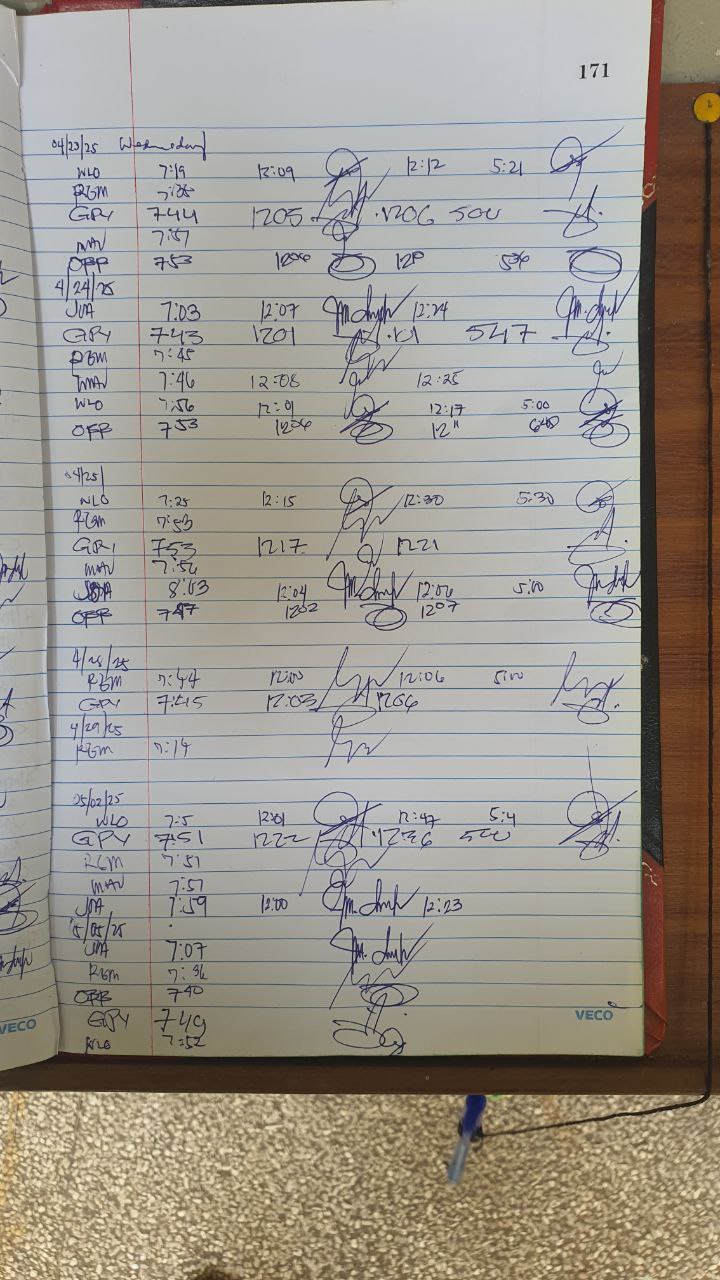 171
04/23/25 Wednesday
WLO 7:19 12:09 12:12 5:21
RGM 7:25
GPY 744 1205 1206 500
MAV 7:57
OFP 753 1206
4/24/25
JVA 7:03 12:07 12:24
GPY 743 1201 547
RGM 7:45
MAV 7:46 12:08 12:25
WLO 7:56 12:01 12:17 5:00
OFP 753 1206 12"
04/25/
WLO 7:25 12:15 12:30 5:30
RGM 7:53
GPY 753 1217 1221
MAV 7:56
8:03 12:04 12:06 5:00
OFP 747 1202 1207
4/28/25
RGM 7:44 12:00 12:06 5:00
GPY 7:45 12:03 1206
4/29/25
RGM 7:14
05/02/25
WLO 12:01 12:47
GPY 751 1222 1236 500
RGM 7:51
MAV 7:57
JVA 7:59 12:00 12:23
5/05/25
JVA 7:07
RGM 7:36
OFP 740
GPY 749
WLO 7:52
VECO
VECO